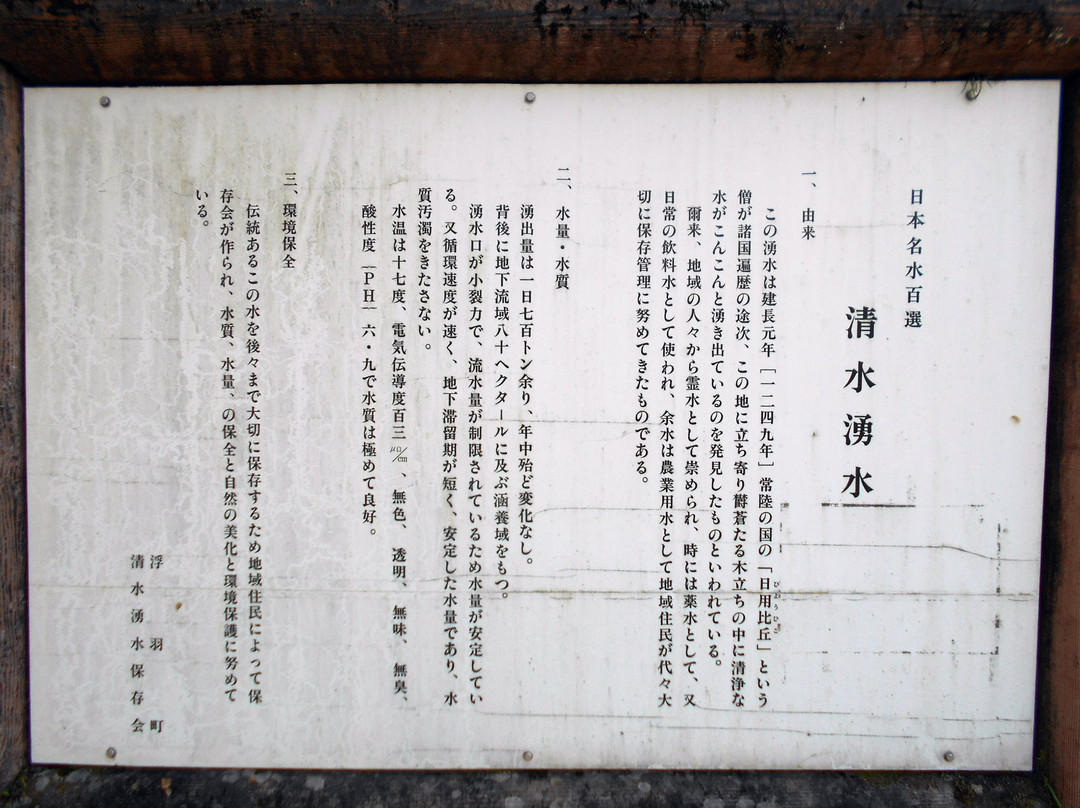 日本名水百選
清水湧水
一、由来
この湧水は建長元年［一二四九年］常陸の国の「日用比丘」という
僧が諸国遍歴の途次、この地に立ち寄り欝蒼たる木立ちの中に清浄な
水がこんこんと湧き出ているのを発見したものといわれている。
爾来、地域の人々から霊水として崇められ、時には薬水として、又
日常の飲料水として使われ、余水は農業用水として地域住民が代々大
切に保存管理に努めてきたものである。
二、水量・水質
湧出量は一日七百トン余り、年中殆ど変化なし。
背後に地下流域八十ヘクタールに及ぶ涵養域をもつ。
湧水口が小裂力で、流水量が制限されているため水量が安定してい
る。又循環速度が速く、地下滞留期が短く、安定した水量であり、水
質汚濁をきたさない。
水温は十七度、電気伝導度百三㎼/㎝、無色、透明、無味、無臭、
酸性度［PH］六・九で水質は極めて良好。
三、環境保全
伝統あるこの水を後々まで大切に保存するため地域住民によって保
存会が作られ、水質、水量、の保全と自然の美化と環境保護に努めて
いる。
浮羽町
清水湧水保存会